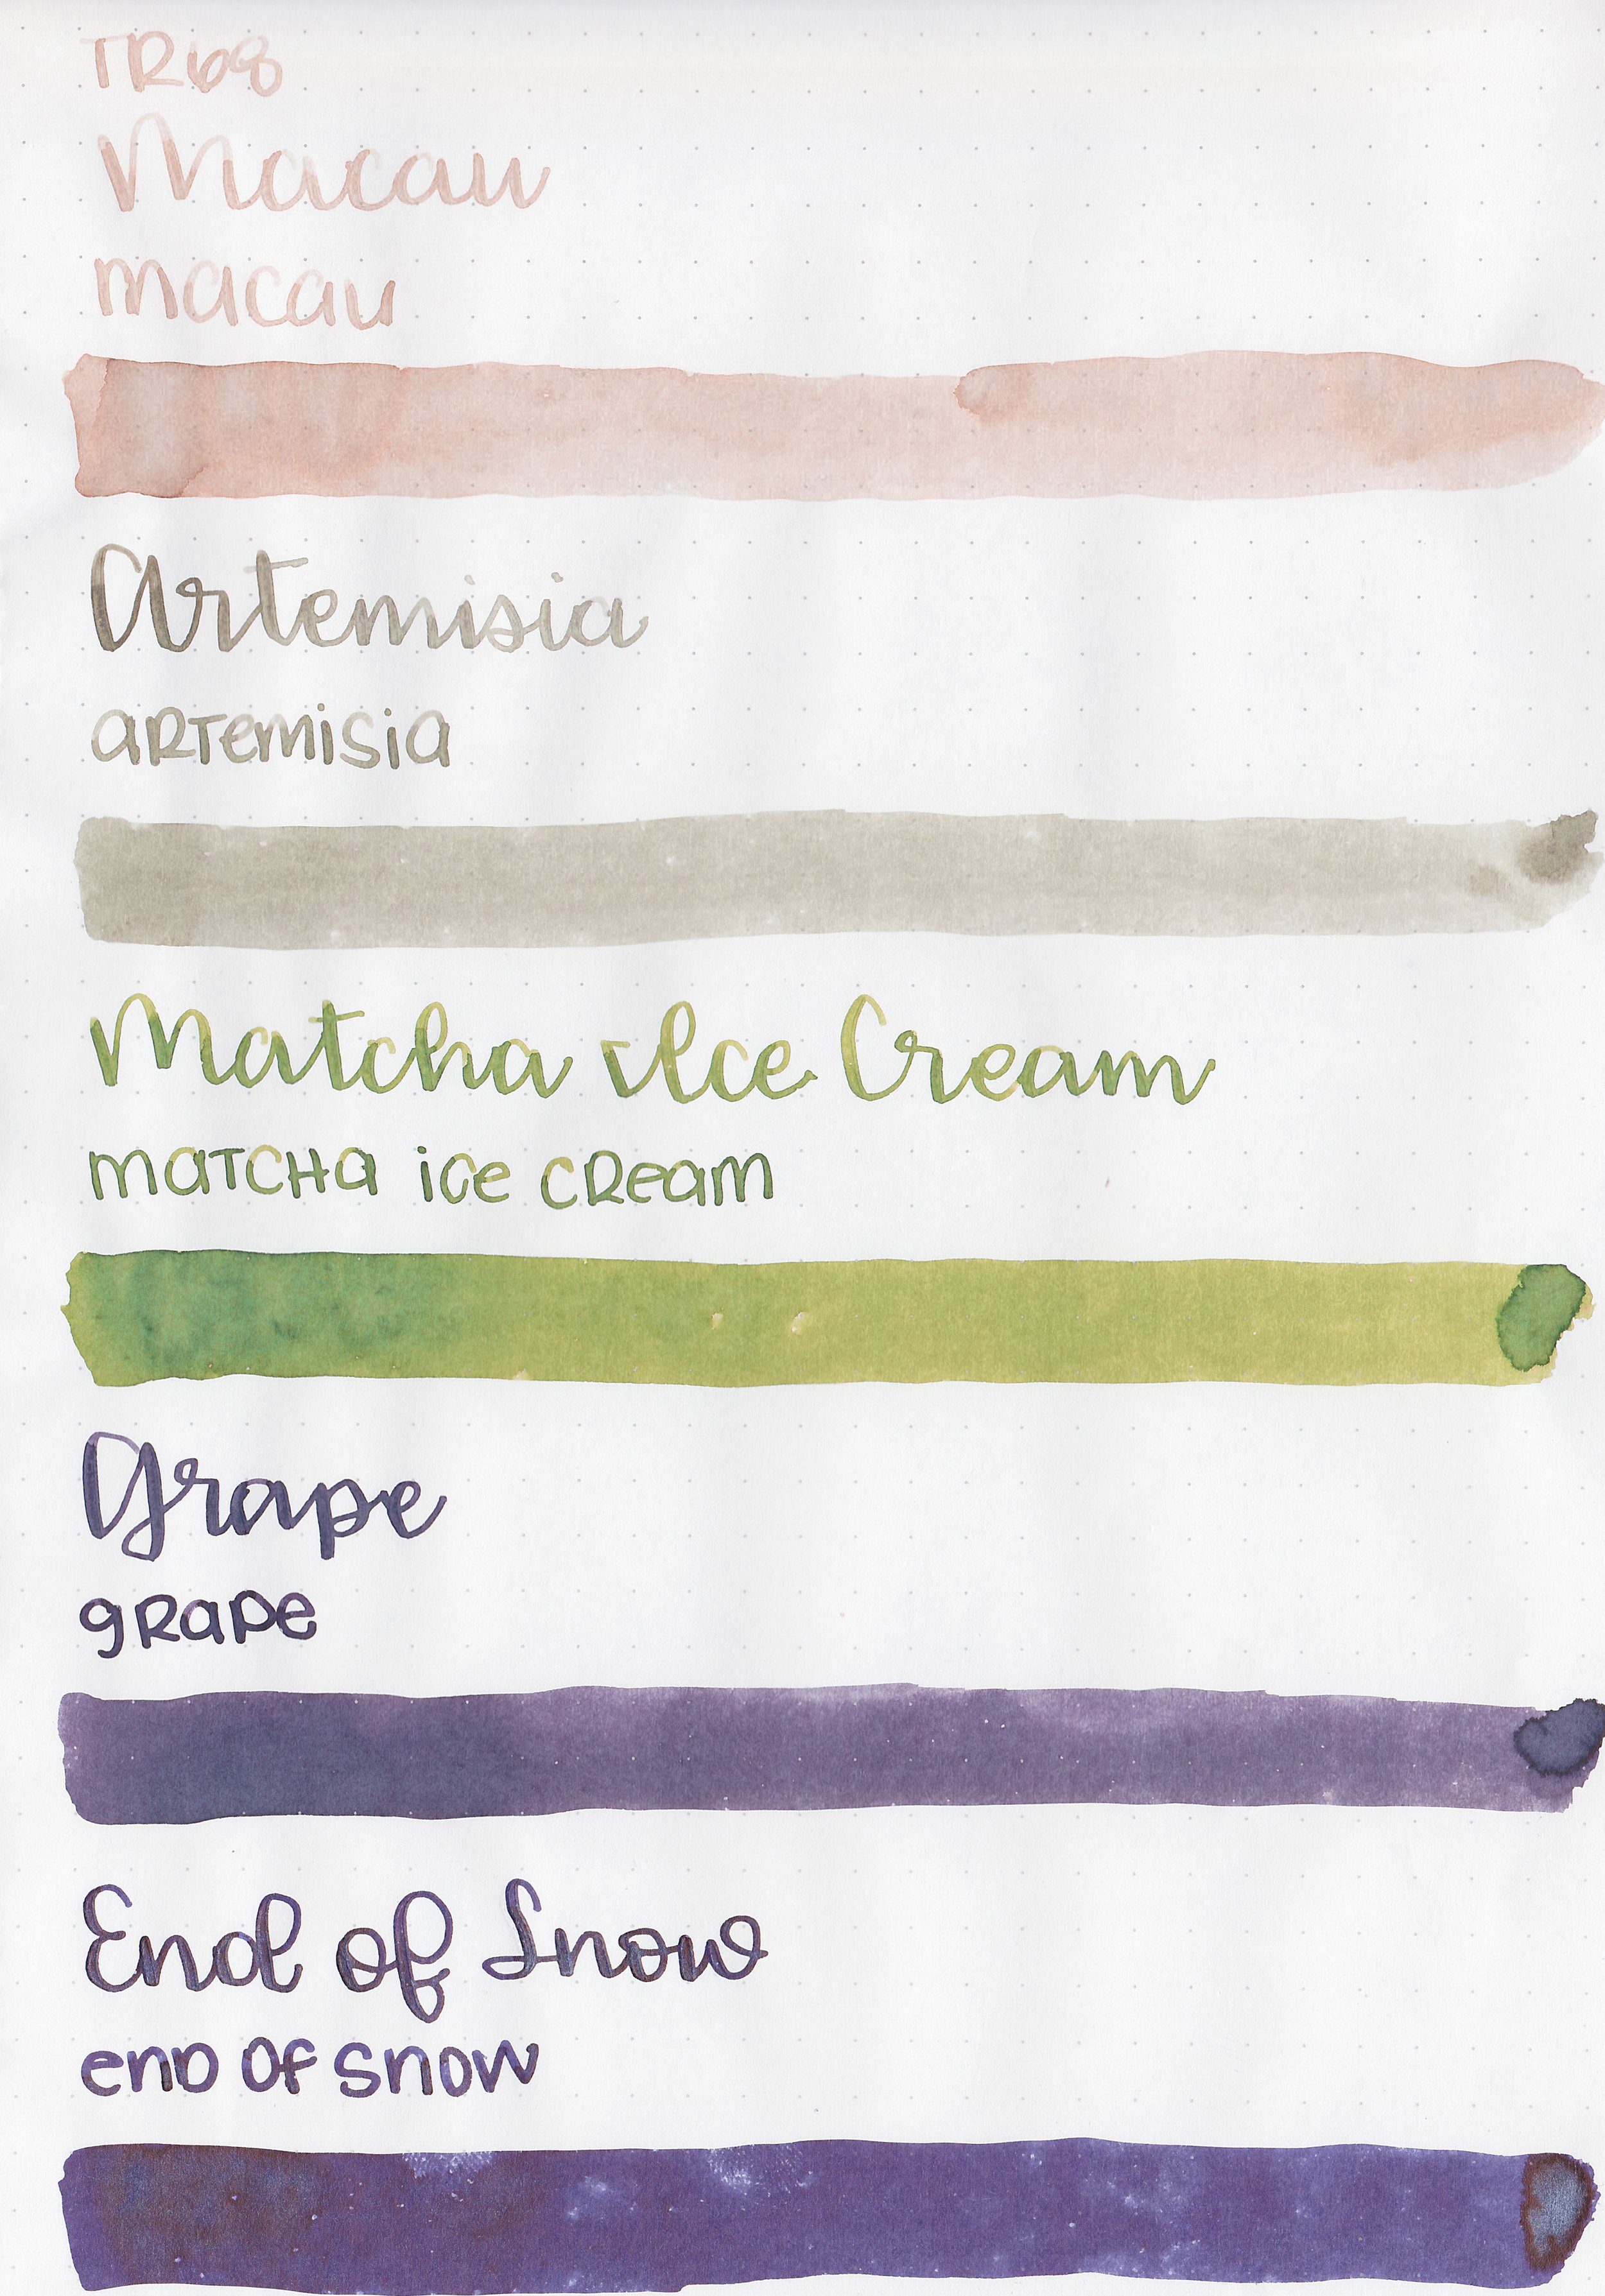 TR68
Macau
macau
Artemisia
aRTemisia
Matcha Ice Cream
maTCHa ice CReam
Grape
gRape
End of Snow
enD OF snow